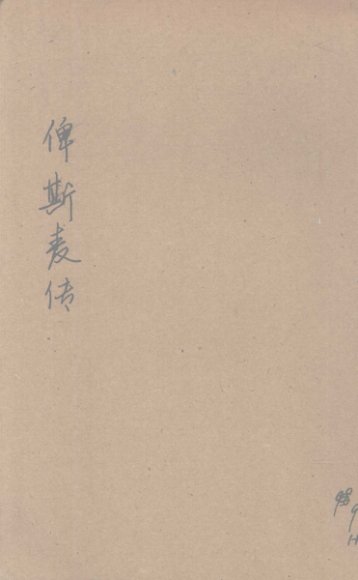 俾斯麦传